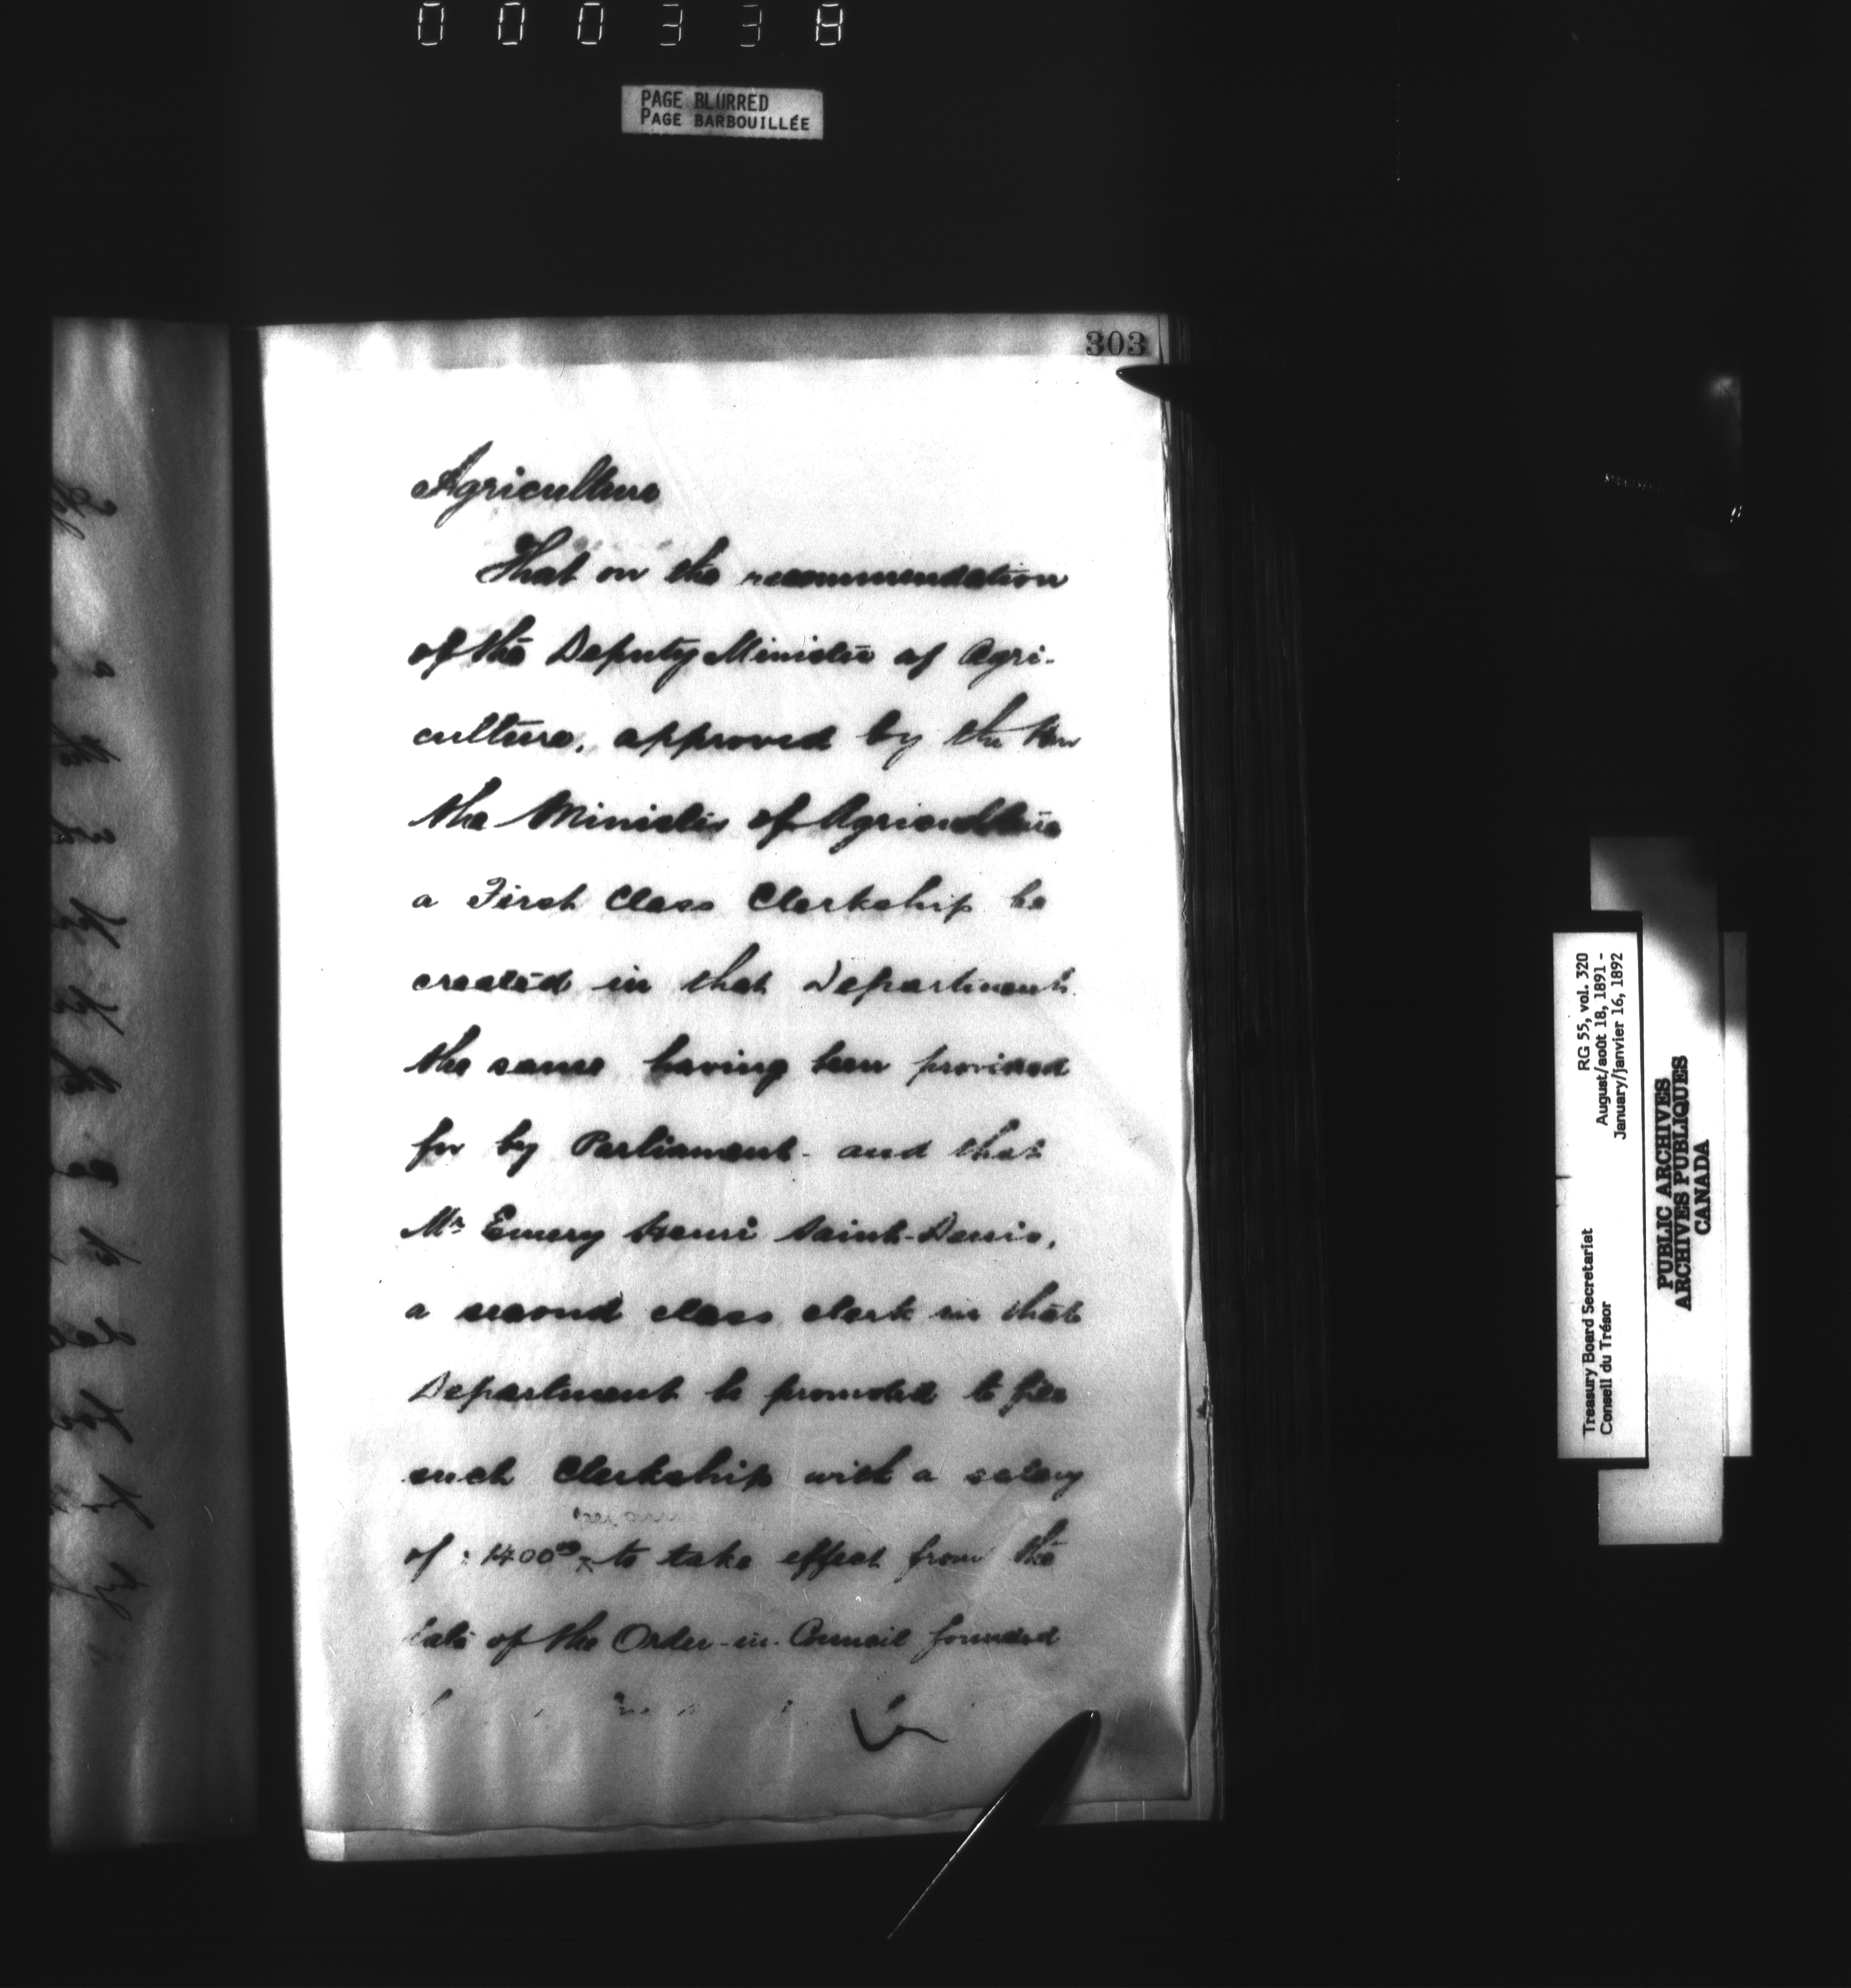 000338
PAGE BLURRED
PAGE BARBOUILLÉE
303
Agriculture
That on the recommendation
of the Deputy Minister of Agri-
culture, approved by the Hon
the Minister of Agriculture
a First Class Clerkship be
created in that Department
the same having been provided
for by Parliament - and that
Mr Emery Henri Saint-Denis,
a second class clerk in that
Department be promoted to fill
such Clerkship with a salary
per annum
of $1400.00 to take effect from the
date of the Order-in-Council founded
RG 55, vol. 320
August/août 18, 1891 -
January/janvier 16, 1892
Treasury Board Secretariat
Conseil du Trésor
PUBLIC ARCHIVES
ARCHIVES PUBLIQUES
CANADA